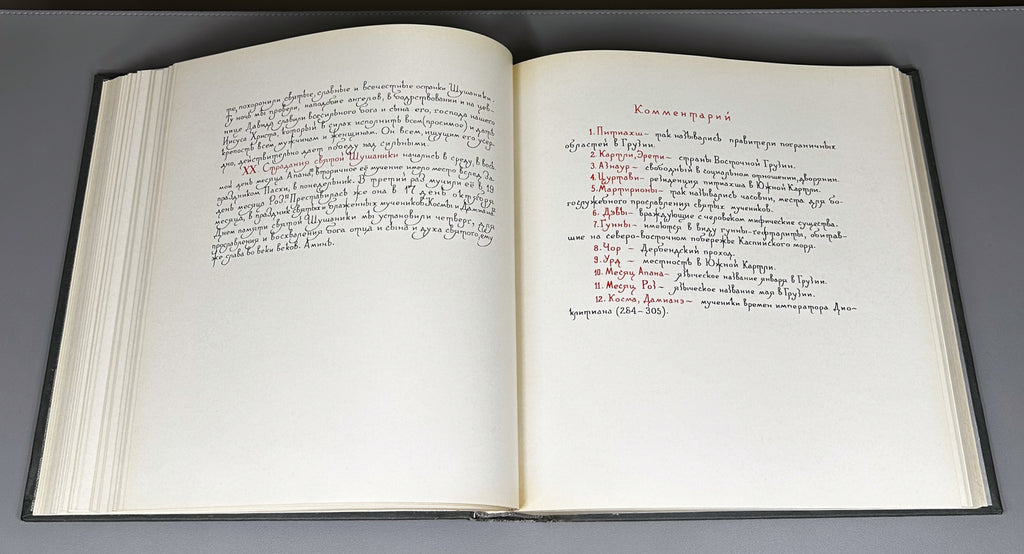 те, похоронили святые, славные и всечестные останки Шушаники.
Ту ночь мы провели, наподобие ангелов, в бодрствовании и на цев-
нице Давида славили всесильного бога и сына его, господа нашего
Иисуса Христа, который в силах исполнить всем (просимое) и дать
крепость всем мужчинам и женщинам. Он всем, ищущим его усер-
дно, действительно дает победу над сильными.
XX Страдания святой Шушаники начались в среду, в вось
мой день месяца Апана, вторичное её мучение имело место вслед за
праздником Пасхи, в понедельник. В третий раз мучили её в 19
день месяца Роз. Преставилась же она в 17 день октября
месяца, в праздник святых и блаженных мучеников Космы и Дамиана
Днем памяти святой Шушаники мы установили четверг, для
прославления и восхваления бога отца и сына и духа святого, ему
же слава во веки веков. Аминь.
Комментарий
1. Питиахш – так назывались правители пограничных
областей в Грузии.
2. Картли, Эрети – страны Восточной Грузии.
3. Азнаур – свободный в социальном отношении, дворянин.
4. Цуртави – резиденция питиахша в Южной Картли.
5. Мартирионы – так назывались часовни, места для бо-
гослужебного прославления святых мучеников.
6. Дэвы – враждующие с человеком мифические существа.
7. Гунны – имеются в виду гунны-гефталиты, обитав-
шие на северо-восточном побережье Каспийского моря.
8. Чор – Дербендский проход.
9. Урд – местность в Южной Картли.
10. Месяц Апана – языческое название января в Грузии.
11. Месяц Роз – языческое название мая в Грузии.
12. Косма, Дамианэ – мученики времен императора Дио-
клитиана (284–305).